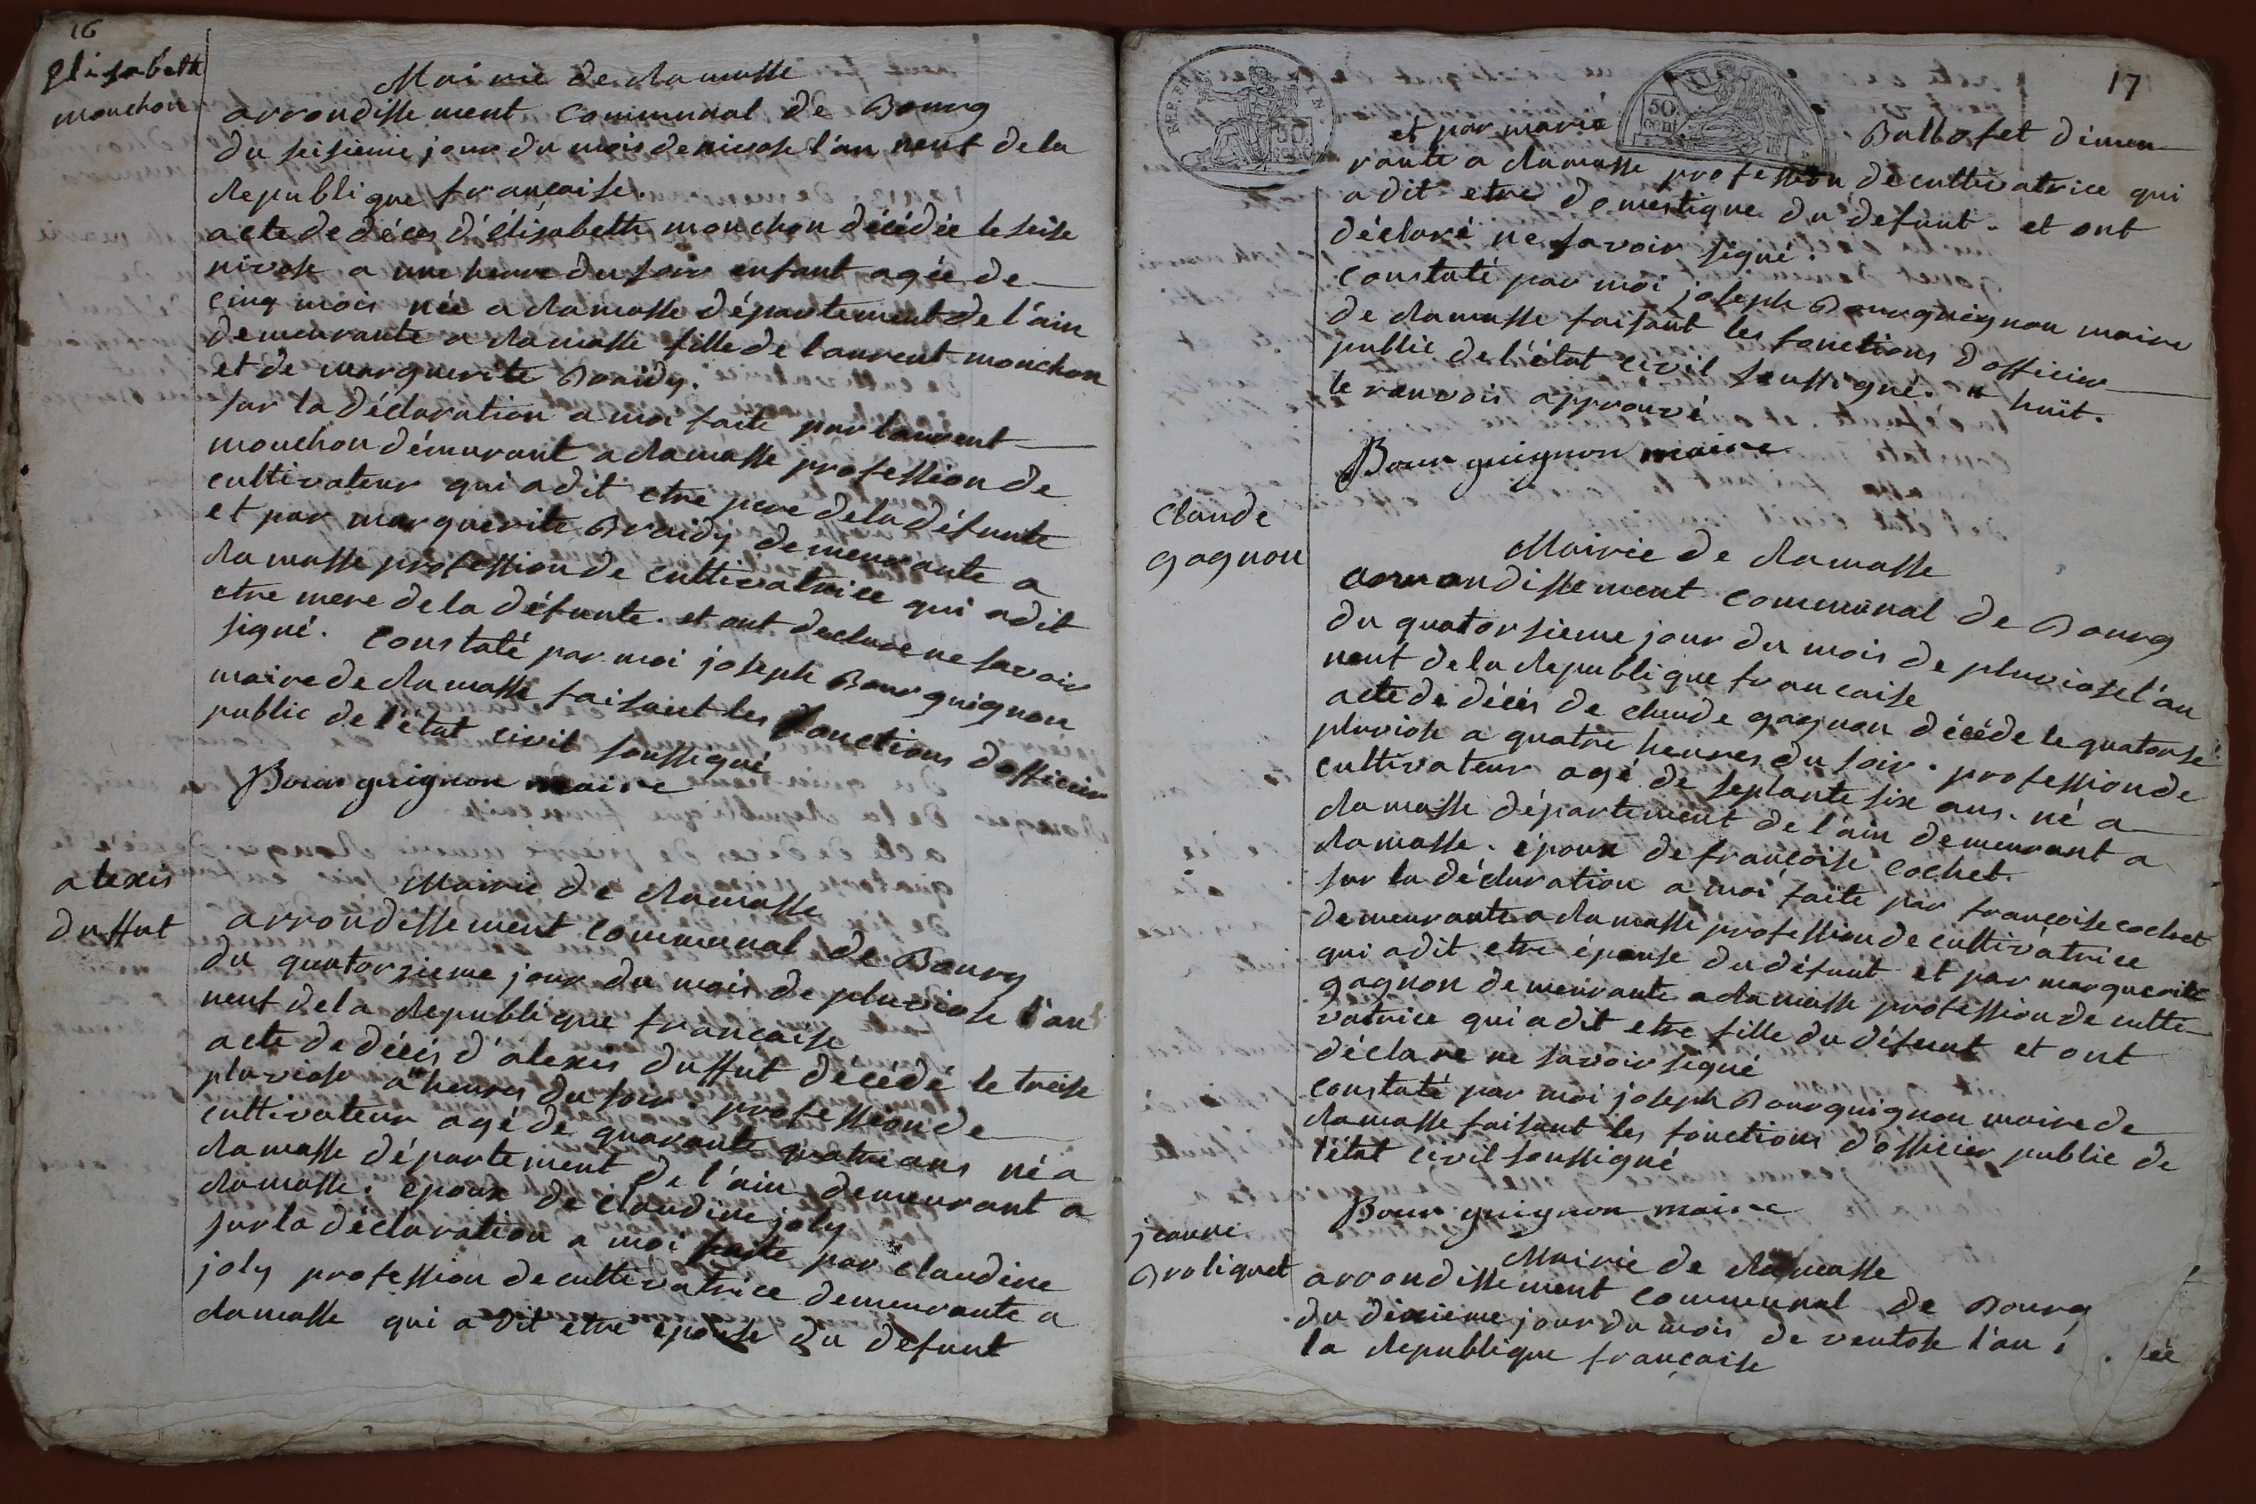 16
Elisabeth
mouchon
Mairie de Ramasse
arrondissement communal de Bourg
du seisieme jour du mois de nivose l'an neuf de la
Republique française.
acte de décès d'élisabeth mouchon décédée le seise
nivose a une heure du soir enfant agée de
cinq mois née a Ramasse département de l'ain
demeurante a Ramasse fille de laurent mouchon
et de marguerite Braidy.
sur la déclaration a moi faite par laurent
mouchon démurant a Ramasse profession de
cultivateur qui a dit etre pere de la défunte
et par marguerite Braidy demeurante a
Ramasse profession de cultivatrice qui a dit
etre mere de la défunte. et ont declare ne savoir
signé. constaté par moi joseph Bourguignon
maire de Ramasse faisant les fonctions d'officier
public de l'état civil soussigné
Bourguignon maire
alexis
duffut
Mairie de Ramasse
arrondissement communal de Bourg
du quatorzieme jour du mois de pluviose l'an
neuf de la Republique française
acte de décès d'alexis duffut décédé le treise
pluviose a heures du soir. profession de
cultivateur agé de quarante quatre ans né a
Ramasse département de l'ain demeurant a
Ramasse. epoux de claudine joly
sur la déclaration a moi faite par claudine
joly profession de cultivatrice demeurante a
Ramasse qui a dit etre épouse du defunt
17
REP. FRA
50
cent
50.
cent
et par marie Ballofet démeu
rante a Ramasse profession de cultivatrice qui
a dit etre domestique du défunt. et ont
déclaré ne savoir signé.
constaté par moi joseph Bourguignon maire
de Ramasse faisant les fonctions d'officier
public de l'état civil soussigné. # huit.
le renvois approuvé
Bourguignon maire
Claude
gagnon
Mairie de Ramasse
arrondissement communal de Bourg
du quatorsieme jour du mois de pluviose l'an
neuf de la Republique française
acte de décès de claude gagnon décédé le quatorse
pluviose a quatre heures du soir. profession de
cultivateur agé de septante six ans. né a
Ramasse département de l'ain demeurant a
Ramasse. époux de françoise cochet.
sur la déclaration a moi faite par françoise cochet
demeurante a Ramasse profession de cultivatrice
qui a dit etre épouse du défunt et par marguerite
gagnon demeurante a Ramasse profession de culti
vatrice qui a dit etre fille du défunt et ont
déclare ne savoir signé
constaté par moi joseph Bourguignon maire de
Ramasse faisant les fonctions d'officier public de
l'état civil soussigné
Bourguignon maire
jeanne
Broliquet
Mairie de Ramasse
arrondissement communal de Bourg
du dixieme jour du mois de ventose l'an
la Republique française